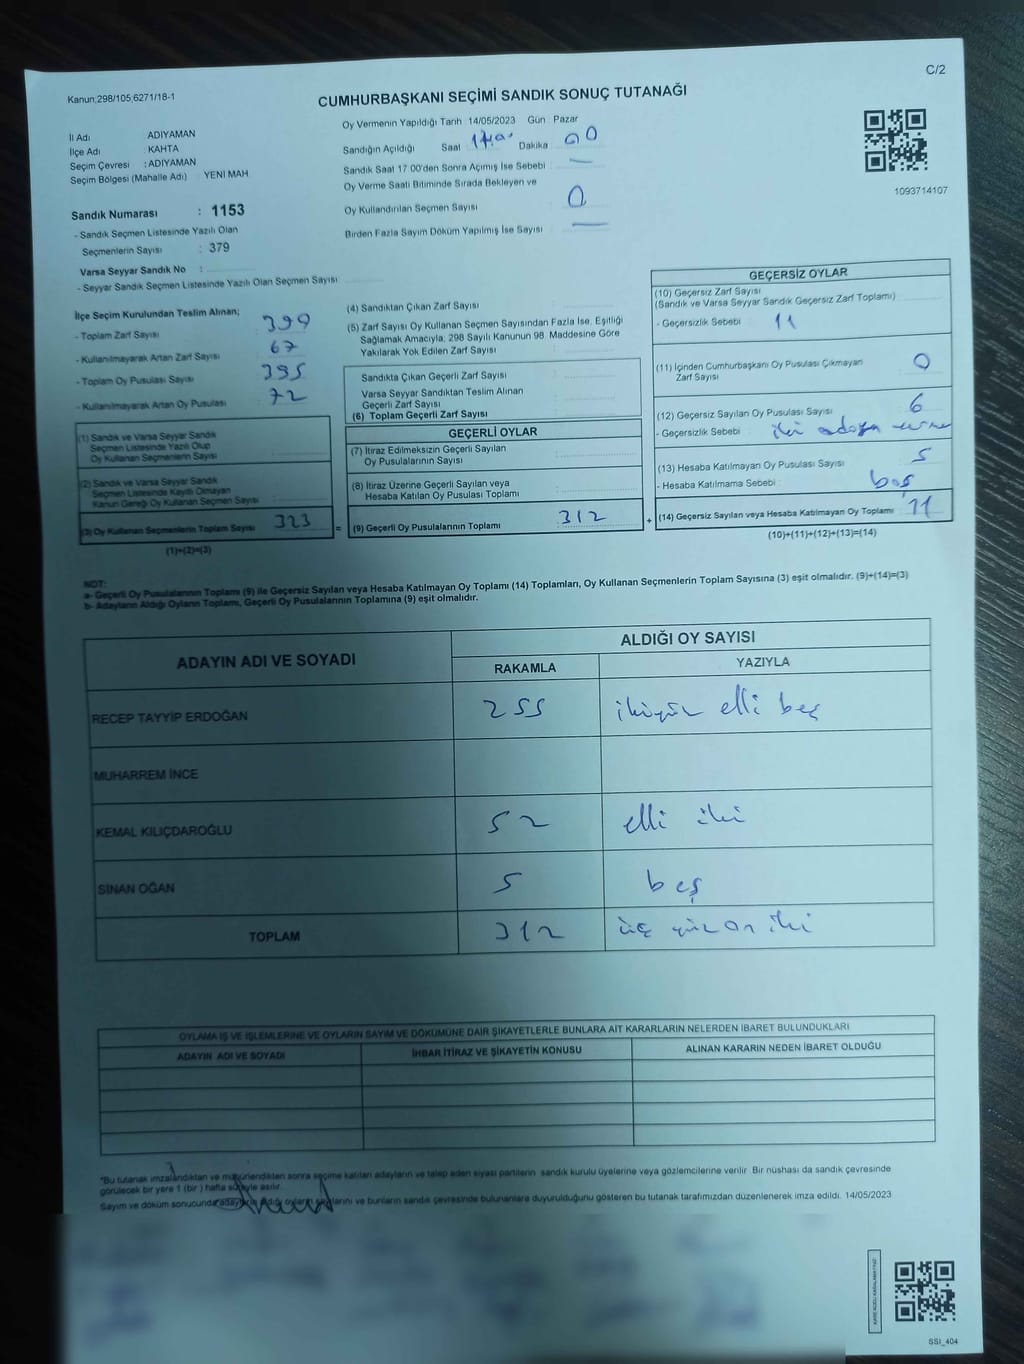 C/2
Kanun;298/105;6271/18-1
CUMHURBAŞKANI SEÇİMİ SANDIK SONUÇ TUTANAĞI
İl Adı ADIYAMAN
İlçe Adı : KAHTA
Seçim Çevresi : ADIYAMAN
Seçim Bölgesi (Mahalle Adı) : YENİ MAH
Sandık Numarası : 1153
- Sandık Seçmen Listesinde Yazılı Olan
Seçmenlerin Sayısı : 379
Varsa Seyyar Sandık No :
- Seyyar Sandık Seçmen Listesinde Yazılı Olan Seçmen Sayısı
Oy Vermenin Yapıldığı Tarih 14/05/2023 Gün Pazar
Sandığın Açıldığı Saat Dakika 00
Sandık Saat 17:00'den Sonra Açımış İse Sebebi —
Oy Verme Saati Bitiminde Sırada Bekleyen ve
Oy Kullandırılan Seçmen Sayısı 0
Birden Fazla Sayım Döküm Yapılmış İse Sayısı —
1093714107
İlçe Seçim Kurulundan Teslim Alınan;
- Toplam Zarf Sayısı 399
- Kullanılmayarak Artan Zarf Sayısı 67
- Toplam Oy Pusulası Sayısı 395
- Kullanılmayarak Artan Oy Pusulası 72
(1) Sandık ve Varsa Seyyar Sandık
Seçmen Listesinde Yazılı Olup
Oy Kullanan Seçmenlerin Sayısı
(2) Sandık ve Varsa Seyyar Sandık
Seçmen Listesinde Kayıtlı Olmayan
Kanun Gereği Oy Kullanan Seçmen Sayısı
(3) Oy Kullanan Seçmenlerin Toplam Sayısı 323 =
(1)+(2)=(3)
(4) Sandıktan Çıkan Zarf Sayısı
(5) Zarf Sayısı Oy Kullanan Seçmen Sayısından Fazla İse, Eşitliği
Sağlamak Amacıyla, 298 Sayılı Kanunun 98. Maddesine Göre
Yakılarak Yok Edilen Zarf Sayısı
Sandıkta Çıkan Geçerli Zarf Sayısı
Varsa Seyyar Sandıktan Teslim Alınan
Geçerli Zarf Sayısı
(6) Toplam Geçerli Zarf Sayısı
GEÇERLİ OYLAR
(7) İtiraz Edilmeksizin Geçerli Sayılan
Oy Pusulalarının Sayısı
(8) İtiraz Üzerine Geçerli Sayılan veya
Hesaba Katılan Oy Pusulası Toplamı
(9) Geçerli Oy Pusulalarının Toplamı 312 +
GEÇERSİZ OYLAR
(10) Geçersiz Zarf Sayısı
(Sandık ve Varsa Seyyar Sandık Geçersiz Zarf Toplamı)
- Geçersizlik Sebebi 11
(11) İçinden Cumhurbaşkanı Oy Pusulası Çıkmayan
Zarf Sayısı 0
(12) Geçersiz Sayılan Oy Pusulası Sayısı 6
- Geçersizlik Sebebi iki adaya
(13) Hesaba Katılmayan Oy Pusulası Sayısı 5
- Hesaba Katılmama Sebebi : beş
(14) Geçersiz Sayılan veya Hesaba Katılmayan Oy Toplamı 11
(10)+(11)+(12)+(13)=(14)
NOT:
a- Geçerli Oy Pusulalarının Toplamı (9) ile Geçersiz Sayılan veya Hesaba Katılmayan Oy Toplamı (14) Toplamları, Oy Kullanan Seçmenlerin Toplam Sayısına (3) eşit olmalıdır. (9)+(14)=(3)
b- Adayların Aldığı Oyların Toplamı, Geçerli Oy Pusulalarının Toplamına (9) eşit olmalıdır.
ADAYIN ADI VE SOYADI ALDIĞI OY SAYISI
RAKAMLA YAZIYLA
RECEP TAYYİP ERDOĞAN 255 ikiyüz elli beş
MUHARREM İNCE
KEMAL KILIÇDAROĞLU 52 elli iki
SİNAN OĞAN 5 beş
TOPLAM 312 üç yüz on iki
OYLAMA İŞ VE İŞLEMLERİNE VE OYLARIN SAYIM VE DÖKÜMÜNE DAİR ŞİKAYETLERLE BUNLARA AİT KARARLARIN NELERDEN İBARET BULUNDUKLARI
ADAYIN ADI VE SOYADI İHBAR İTİRAZ VE ŞİKAYETİN KONUSU ALINAN KARARIN NEDEN İBARET OLDUĞU
*Bu tutanak imzalandıktan ve mühürlendikten sonra seçime katılan adayların ve talep eden siyasi partilerin sandık kurulu üyelerine veya gözlemcilerine verilir. Bir nüshası da sandık çevresinde
görülecek bir yere 1 (bir ) hafta süreyle asılır.
Sayım ve döküm sonucunda adayların aldığı oyların sayılarını ve bunların sandık çevresinde bulunanlara duyurulduğunu gösteren bu tutanak tarafımızdan düzenlenerek imza edildi. 14/05/2023
SSİ_404